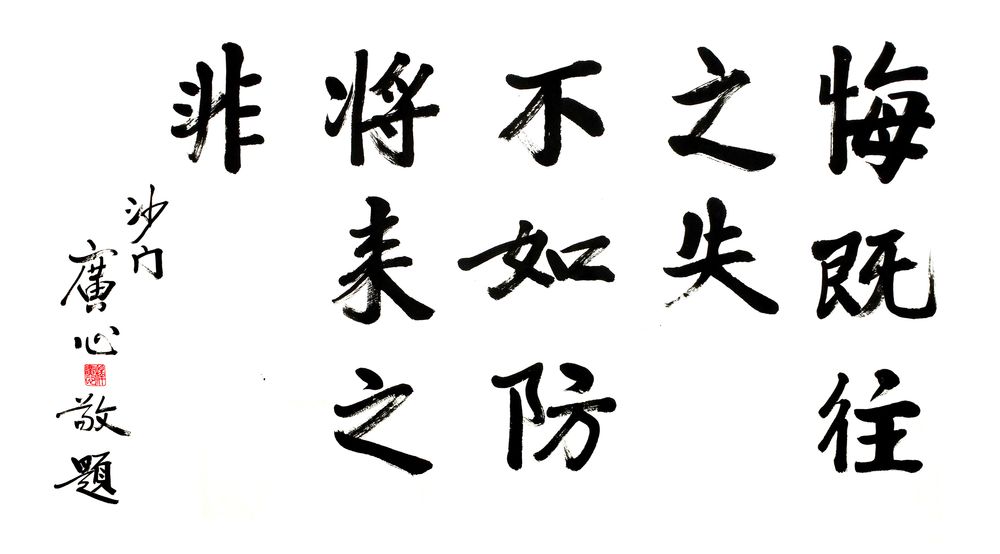 悔既往
之失
不如防
将来之
非
沙门
廣心
敬题